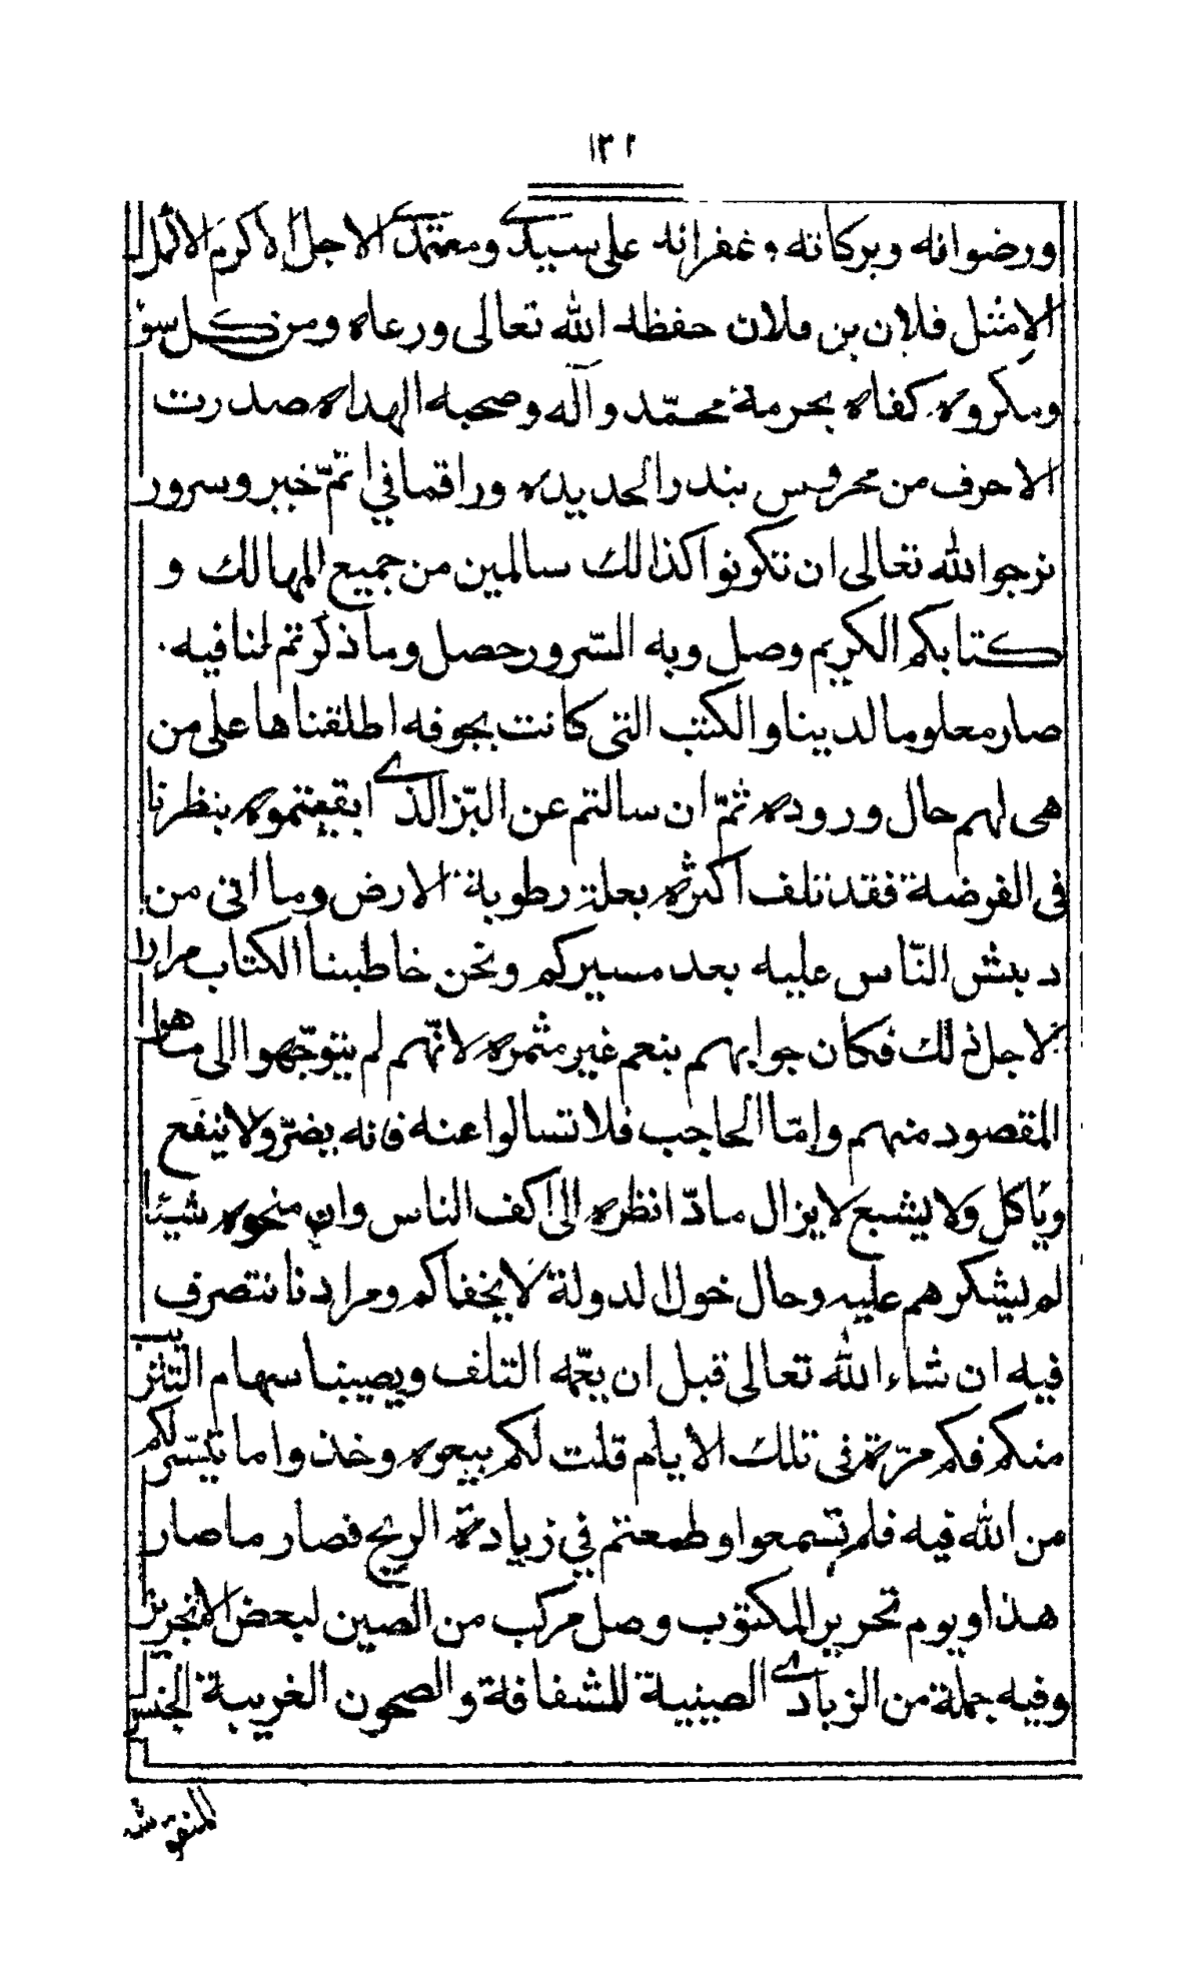 ١٣٢
ورضوانه وبركاته وغفرانه على سيدي ومعتمدي الاجل الاكرم الاكمل
الامثل فلان بن فلان حفظه الله تعالى ورعاه ومن كل سوء
ومكروه كفاه بحرمة محمّد وآله وصحبه الهداه صدرت
الاحرف من محروس بندر الحديده وراقمها في اتمّ خير وسرور
نرجوا الله تعالى ان تكونوا كذالك سالمين من جميع المهالك و
كتابكم الكريم وصل وبه السّرور حصل وما ذكرتم لنا فيه
صار معلوما لدينا والكتب التى كانت بجوفه اطلقناها على من
هى لهم حال وروده ثمّ ان سالتم عن البّز الذي ابقيتموه بنظرنا
فى الفرضة فقد تلف اكثره بعلة رطوبة الارض وما اتى من
يفتش النّاس عليه بعد مسيركم ونحن خاطبنا الكتاب مرارا
لاجل ذلك فكان جوابهم بنعم غير مثمره لانّهم لم يتوجّهوا الى ما هو
المقصود منهم وامّا الحاجب فلا تسالوا عنه فانه يضرّ ولا ينفع
وياكل ولا يشبع لا يزال مادّا نظره الى اكف الناس وان منحوه شيئا
لم يشكرهم عليه وحال خوال لدولة لا يخفاكم ومرادنا نتصرف
فيه ان شاء الله تعالى قبل ان يعّمه التلف ويصيبنا سهام التثريب
منكم فكم مرّة فى تلك الأيام قلت لكم بيعوه وخذوا ما تيسّر لكم
من الله فيه فلم تسمعوا وطمعتم في زيادة الربح فصار ما صار
هذا ويوم تحرير المكتوب وصل مركب من الصين لبعض الانجريز
وفيه جملة من الزبادي الصينية الشفافة والصحون الغريبة الجنس
المنقوشه